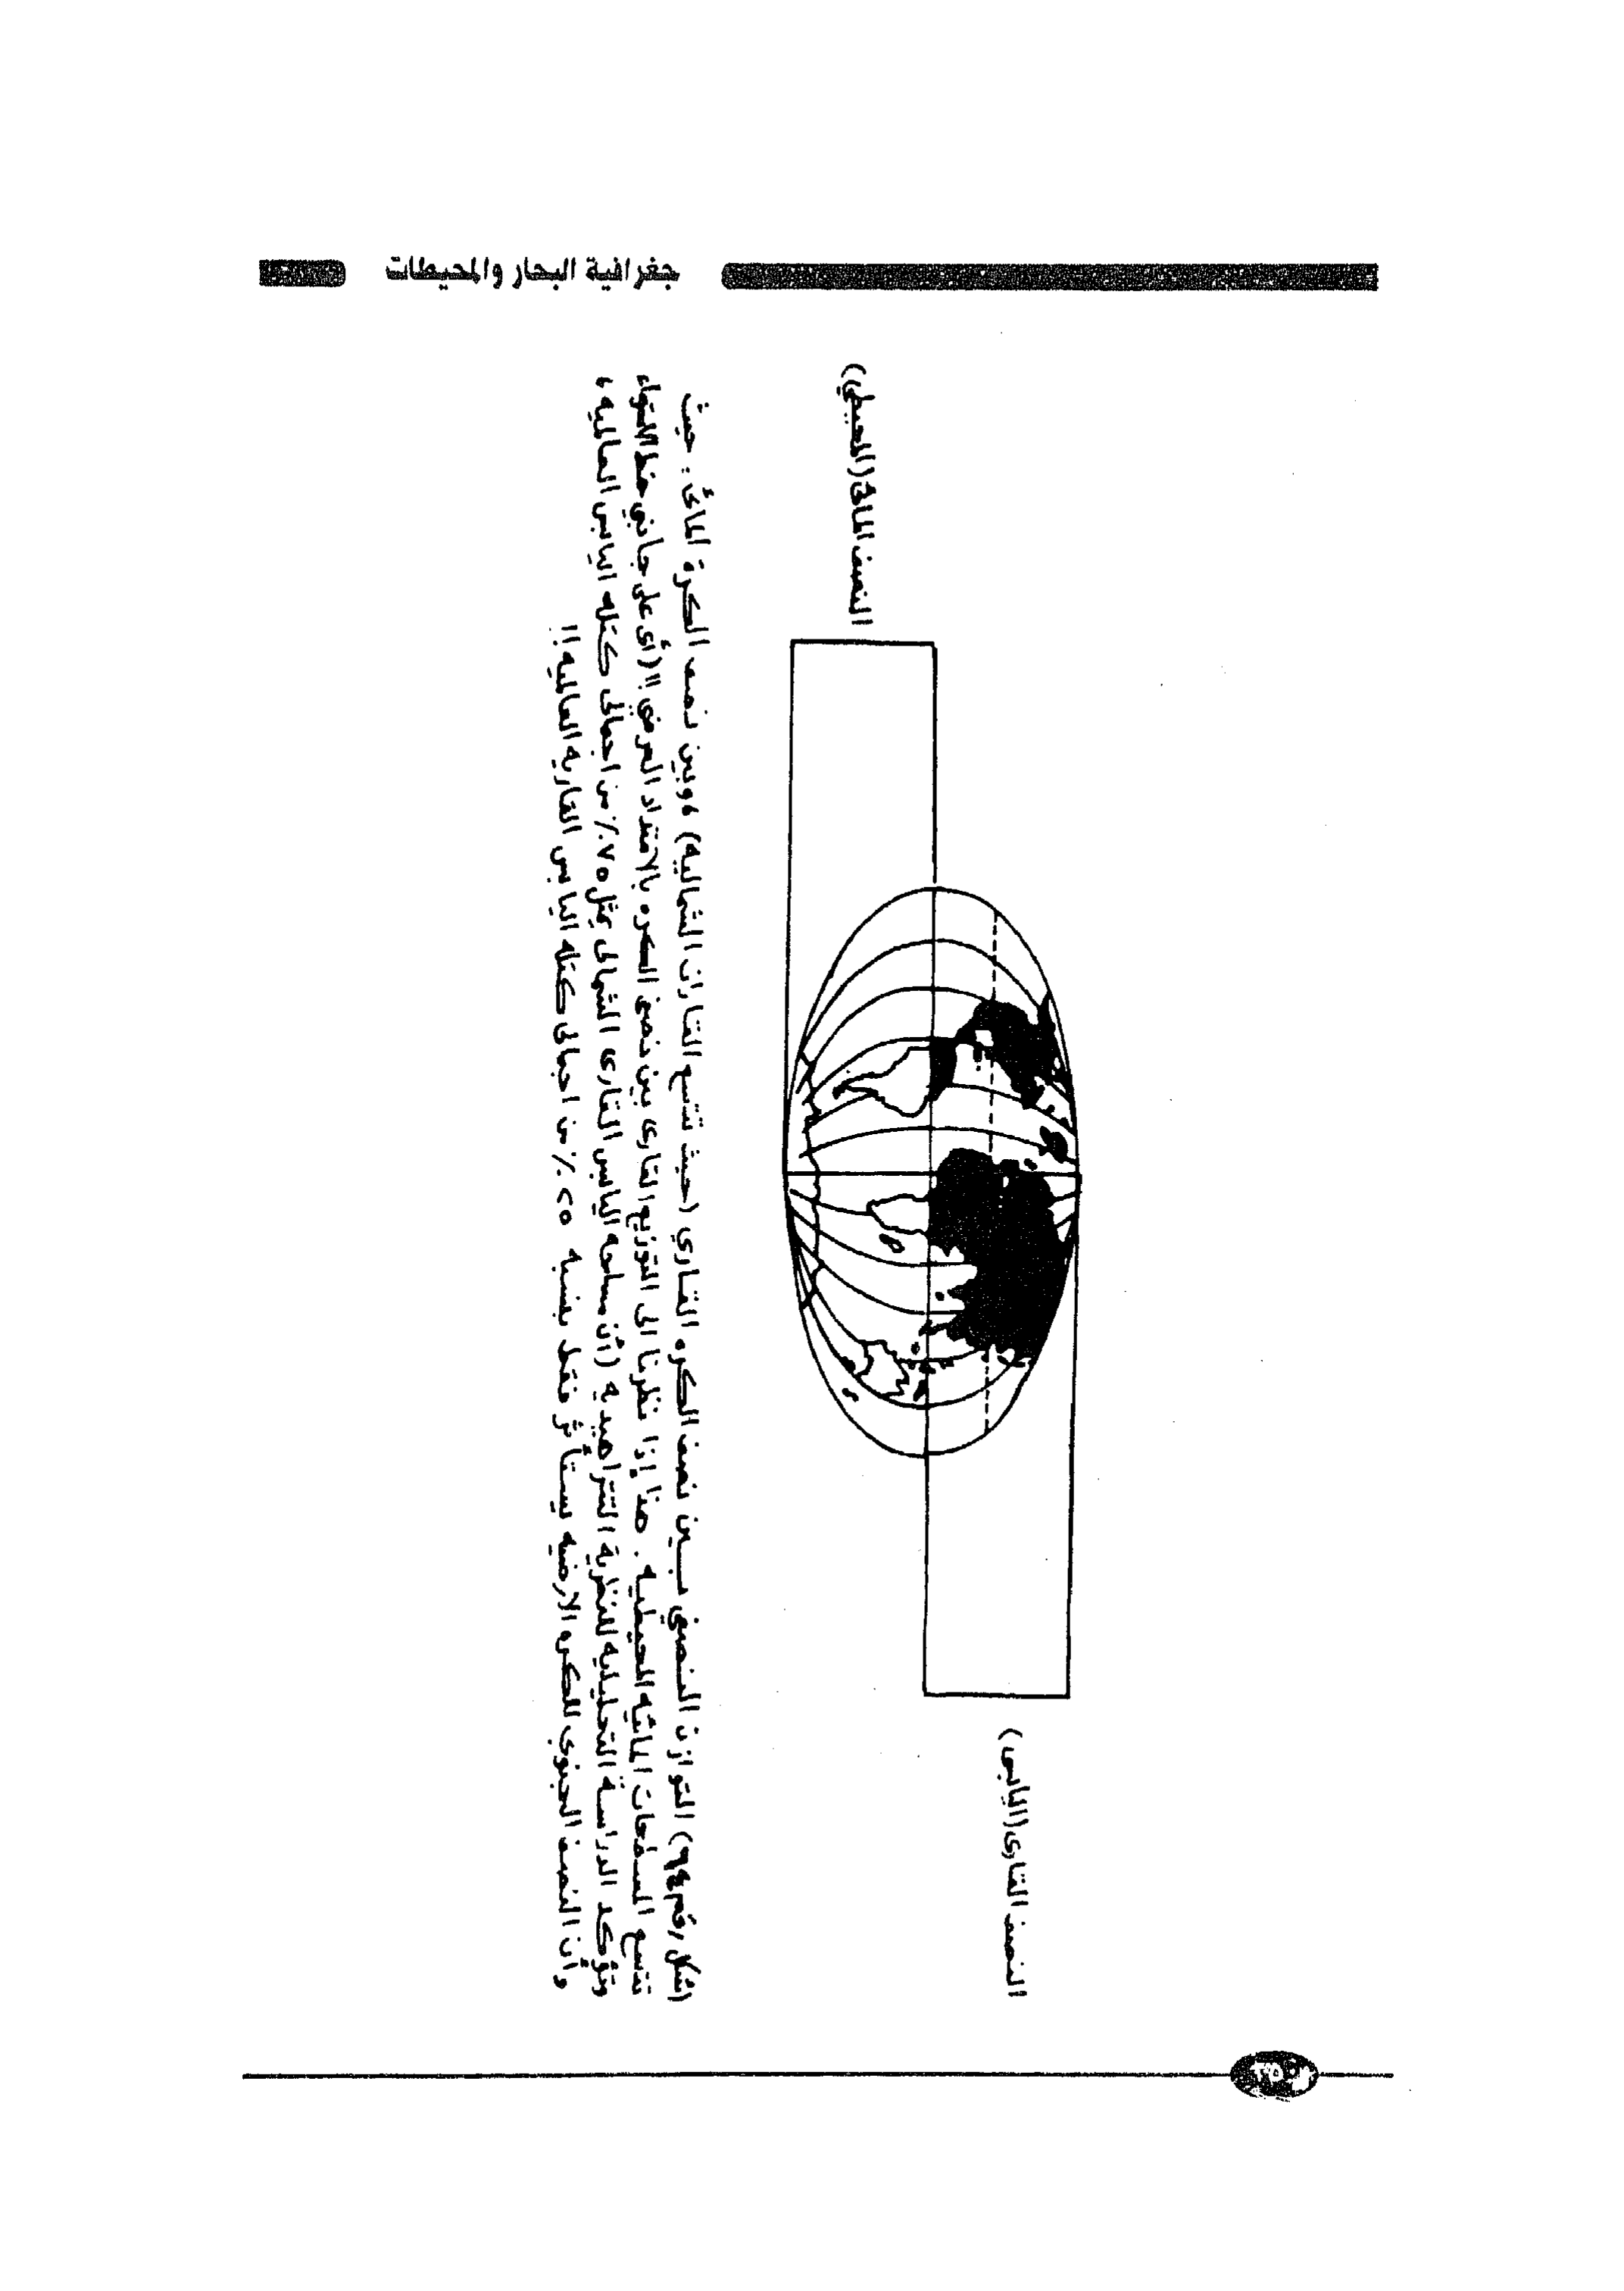 جغرافية البحار والمحيطات
النصف المائى (المحيطي)
النصف القارى (اليابس)
(شكل رقم ٩٤) التوازن النصفي بين نصف الكره القاري (حيث تتسع القارات الشماليه) ، وبين نصف الكرة المائى : حيث
تتسع المسطحات المائيه المحيطيه . هذا إذا نظرنا الى التوزيع القارى بين نصفى الكره بالامتداد العرضي !! (أى على جانبي خط الاستواء
وتؤكد الدراسة التحليليه للنظرية التتراهيديه (أن مساحه اليابس القارى الشمالى يمثل ٧٥٪ من اجمالى كتله اليابس العالميه ،
وأن النصف الجنوبى للكره الارضيه يستأثر فقط بنسبه ٢٥٪ من اجمالى كتله اليابس القاريه العالميه !!